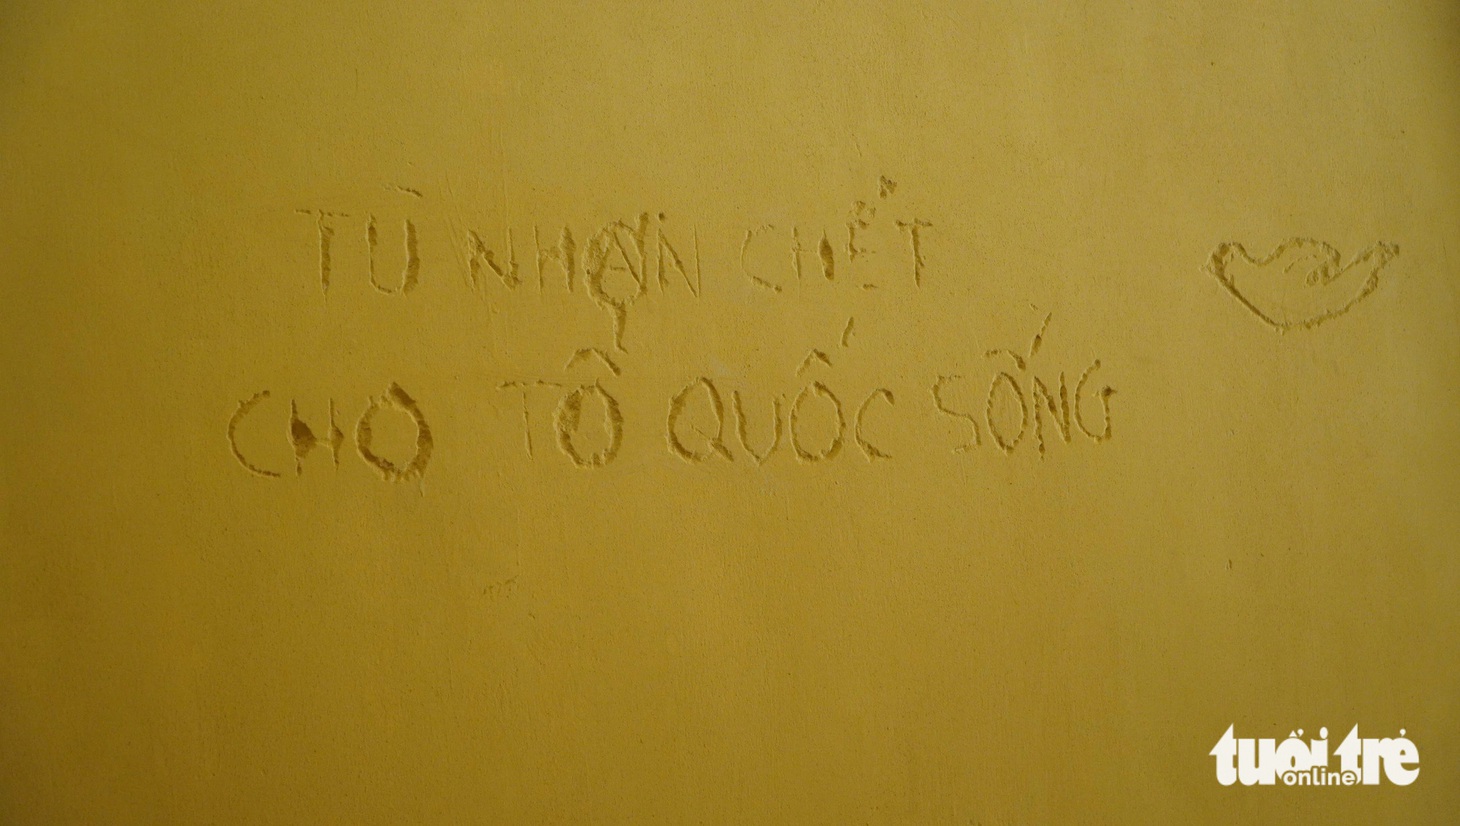 TÙ NHÂN CHẾT
CHO TỔ QUỐC SỐNG
tuổi trẻ
online